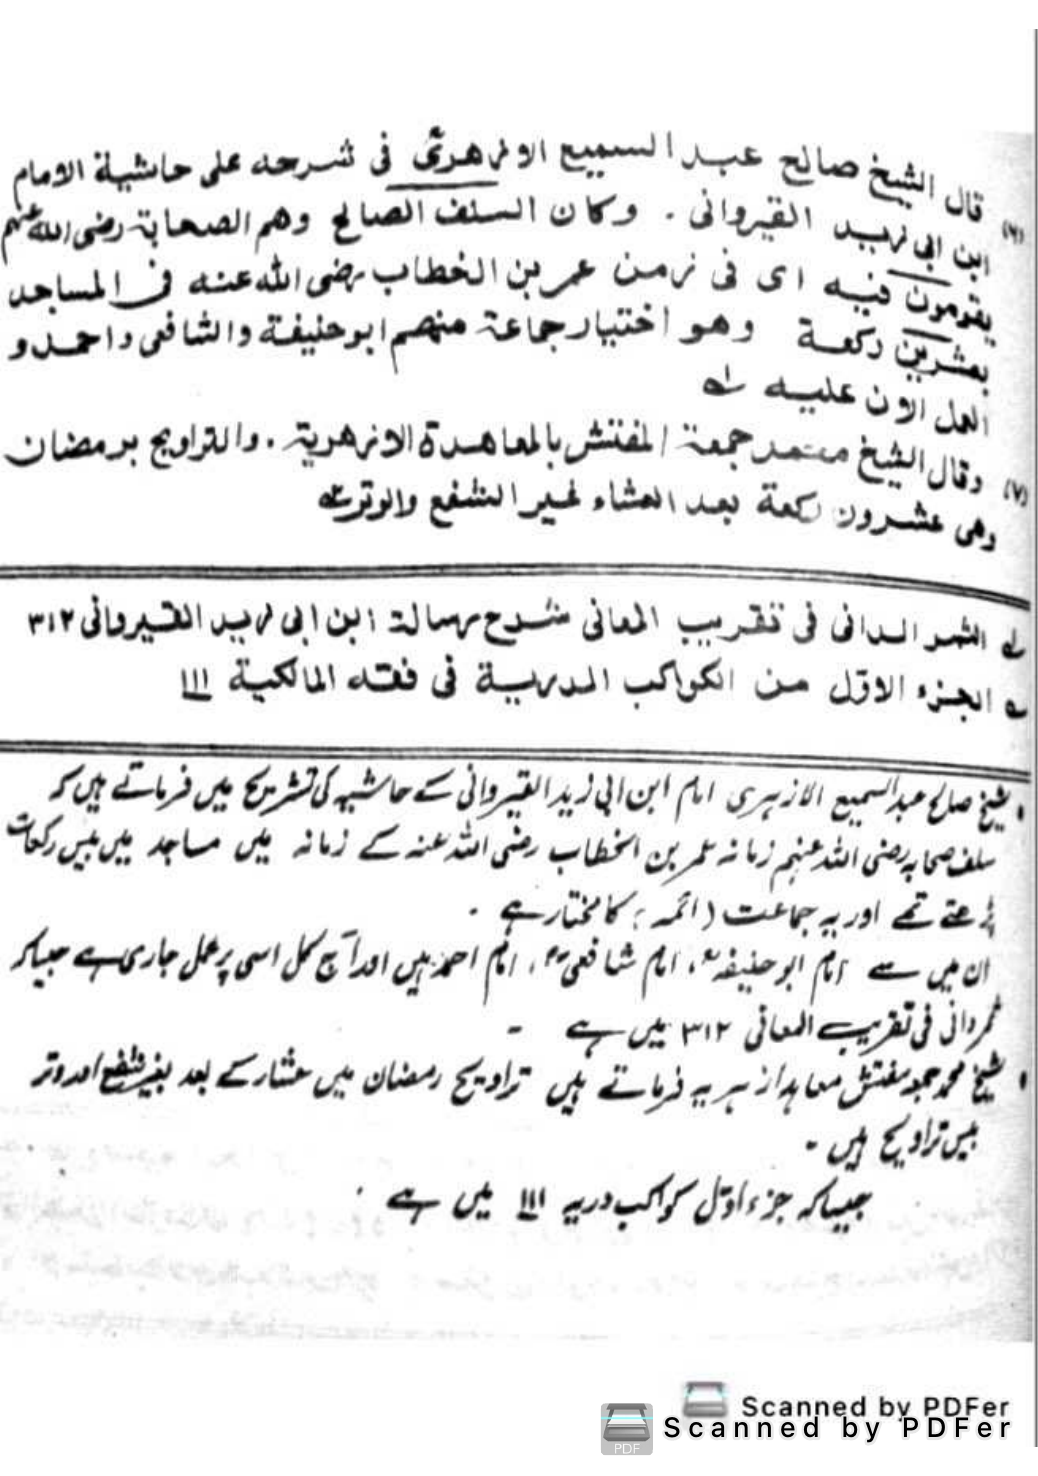 (٦) قال الشيخ صالح عبد السميع الازهرىؒ فى شرحه على حاشية الامام
ابن ابى زيد القيروانى . وكان السلف الصالح وهم الصحابة رضى الله عنهم
يقومون فيه اى فى زمن عمر بن الخطاب رضى الله عنه فى المساجد
بعشرين ركعة وهو اختيار جماعة منهم ابوحنيفة والشافعى واحمد و
العمل الان عليه ١ه
(٧) وقال الشيخ معتمد جمعة المفتش بالمعاهدة الازهرية . والتراويح برمضان
وهى عشرون ركعة بعد العشاء غير الشفع والوتر ٢ه
١ه الثمر الدانى فى تقريب المعانى شرح رسالة ابن ابى زيد القيروانى ٣١٢
٢ه الجزء الاول من الكواكب الدرية فى فقه المالكية ١١١
شیخ صالح عبدالسمیع الازہری امام ابن ابی زید القیروانی کے حاشیہ کی تشریح میں فرماتے ہیں کہ
سلف صحابہ رضی اللہ عنہم زمانہ عمر بن الخطاب رضی اللہ عنہ کے زمانہ میں مساجد میں بیس رکعات
پڑھتے تھے اور یہ جماعت (ائمہ) کا مختار ہے ۔
ان میں سے امام ابو حنیفہؒ، امام شافعیؒ، امام احمدؒ ہیں اور آج کل اسی پر عمل جاری ہے جیسا کہ
ثمردانی فی تقریب المعانی ٣١٢ میں ہے ۔
شیخ محمد جمعہ مفتش معاہد ازہریہ فرماتے ہیں تراویح رمضان میں عشار کے بعد بغیر شفع اور وتر
بیس تراویح ہیں ۔
جیسا کہ جزء اول کواکب دریہ ١١١ میں ہے .
Scanned by PDFer
Scanned by PDFer
PDF